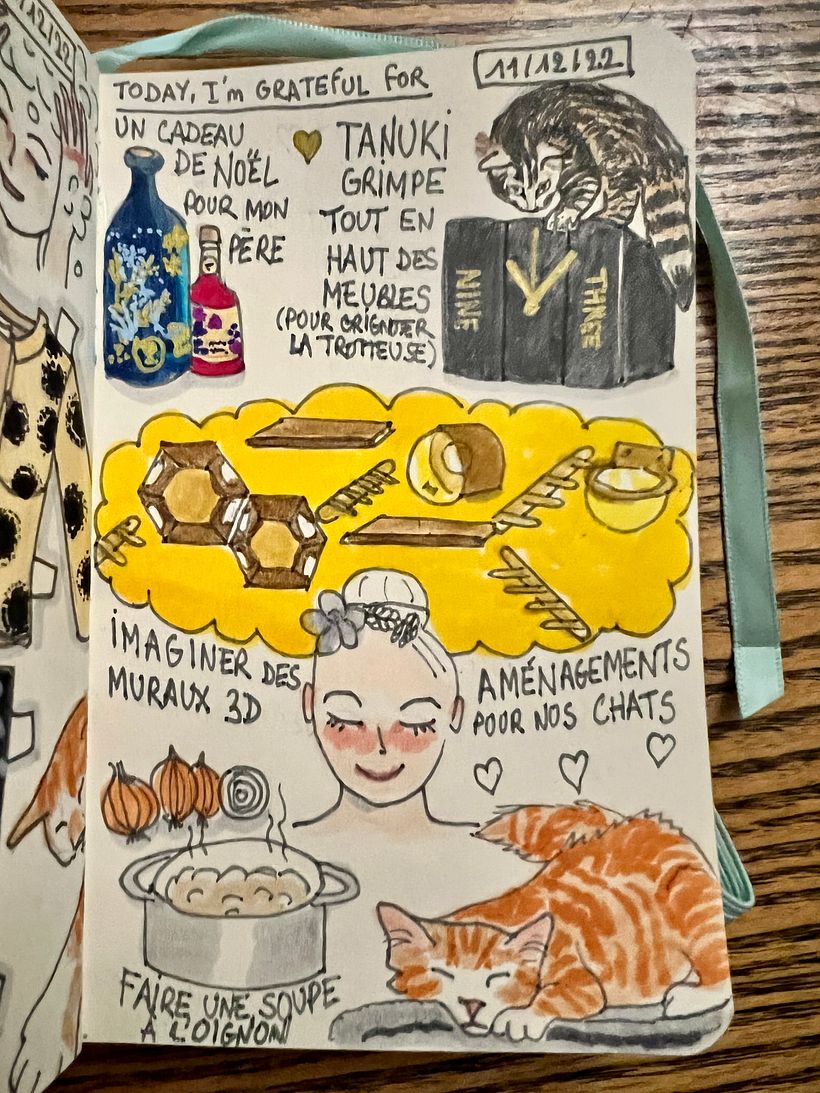 /12/22
TODAY, I'm GRATEFUL FOR
11/12/22
UN CADEAU
DE NOËL
POUR MON
PÈRE
TANUKI
GRIMPE
TOUT EN
HAUT DES
MEUBLES
(POUR GRIGNOTER
LA TROTTEUSE)
NINE
THREE
IMAGINER DES
MURAUX 3D
AMÉNAGEMENTS
POUR NOS CHATS
FAIRE UNE SOUPE
A L'OIGNON